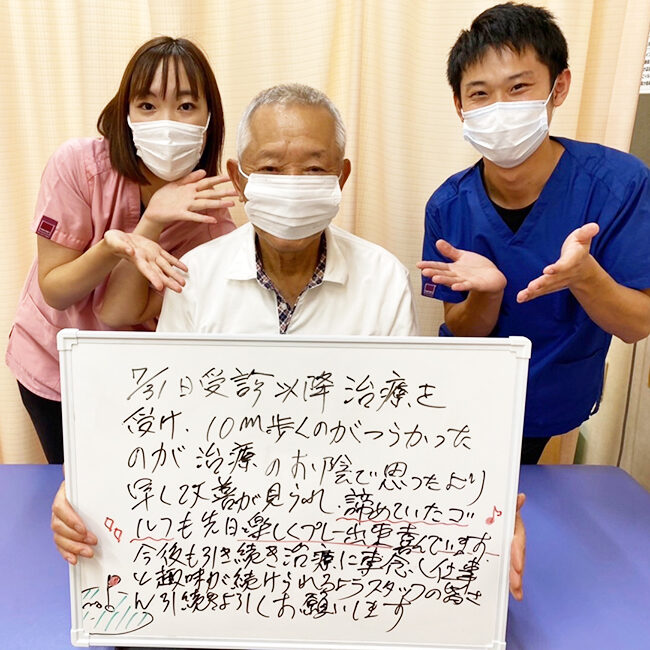 7/31日受診以降治療を
受け、10m歩くのがつらかった
のが治療のお陰で思ったより
早く改善が見られ、諦めていたゴ
ルフも先日楽しくプレー出来喜んでいます
今後も引き続き治療に専念し仕事
と趣味が続けられるようスタッフの皆さ
ん引続きよろしくお願いします